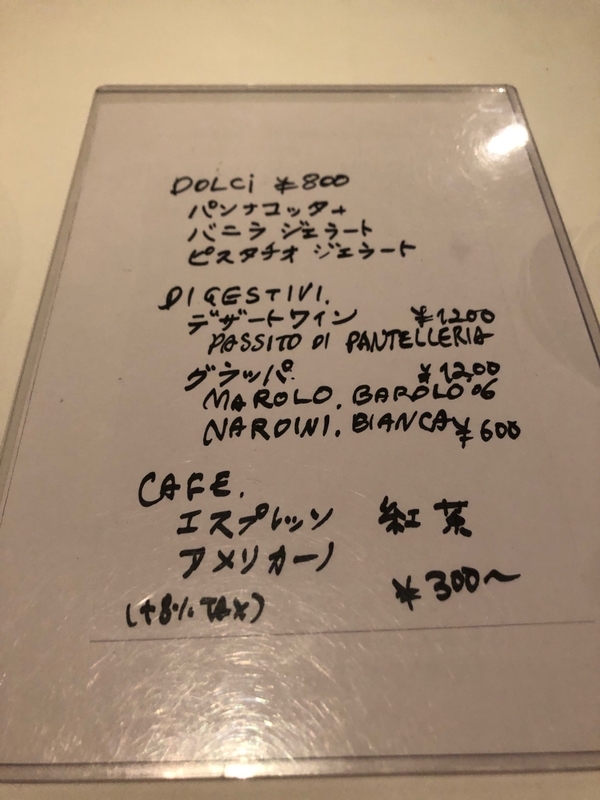 DOLCi ¥800
パンナコッタ
バニラ ジェラート
ピスタチオ ジェラート
DIGESTIVI.
デザートワイン ¥1200
PASSITO DI PANTELLERIA
グラッパ ¥1200
MAROLO. BAROLO 06
NARDINI. BIANCA ¥600
CAFE.
エスプレッソ 紅茶
アメリカーノ
¥300〜
(+8% TAX)